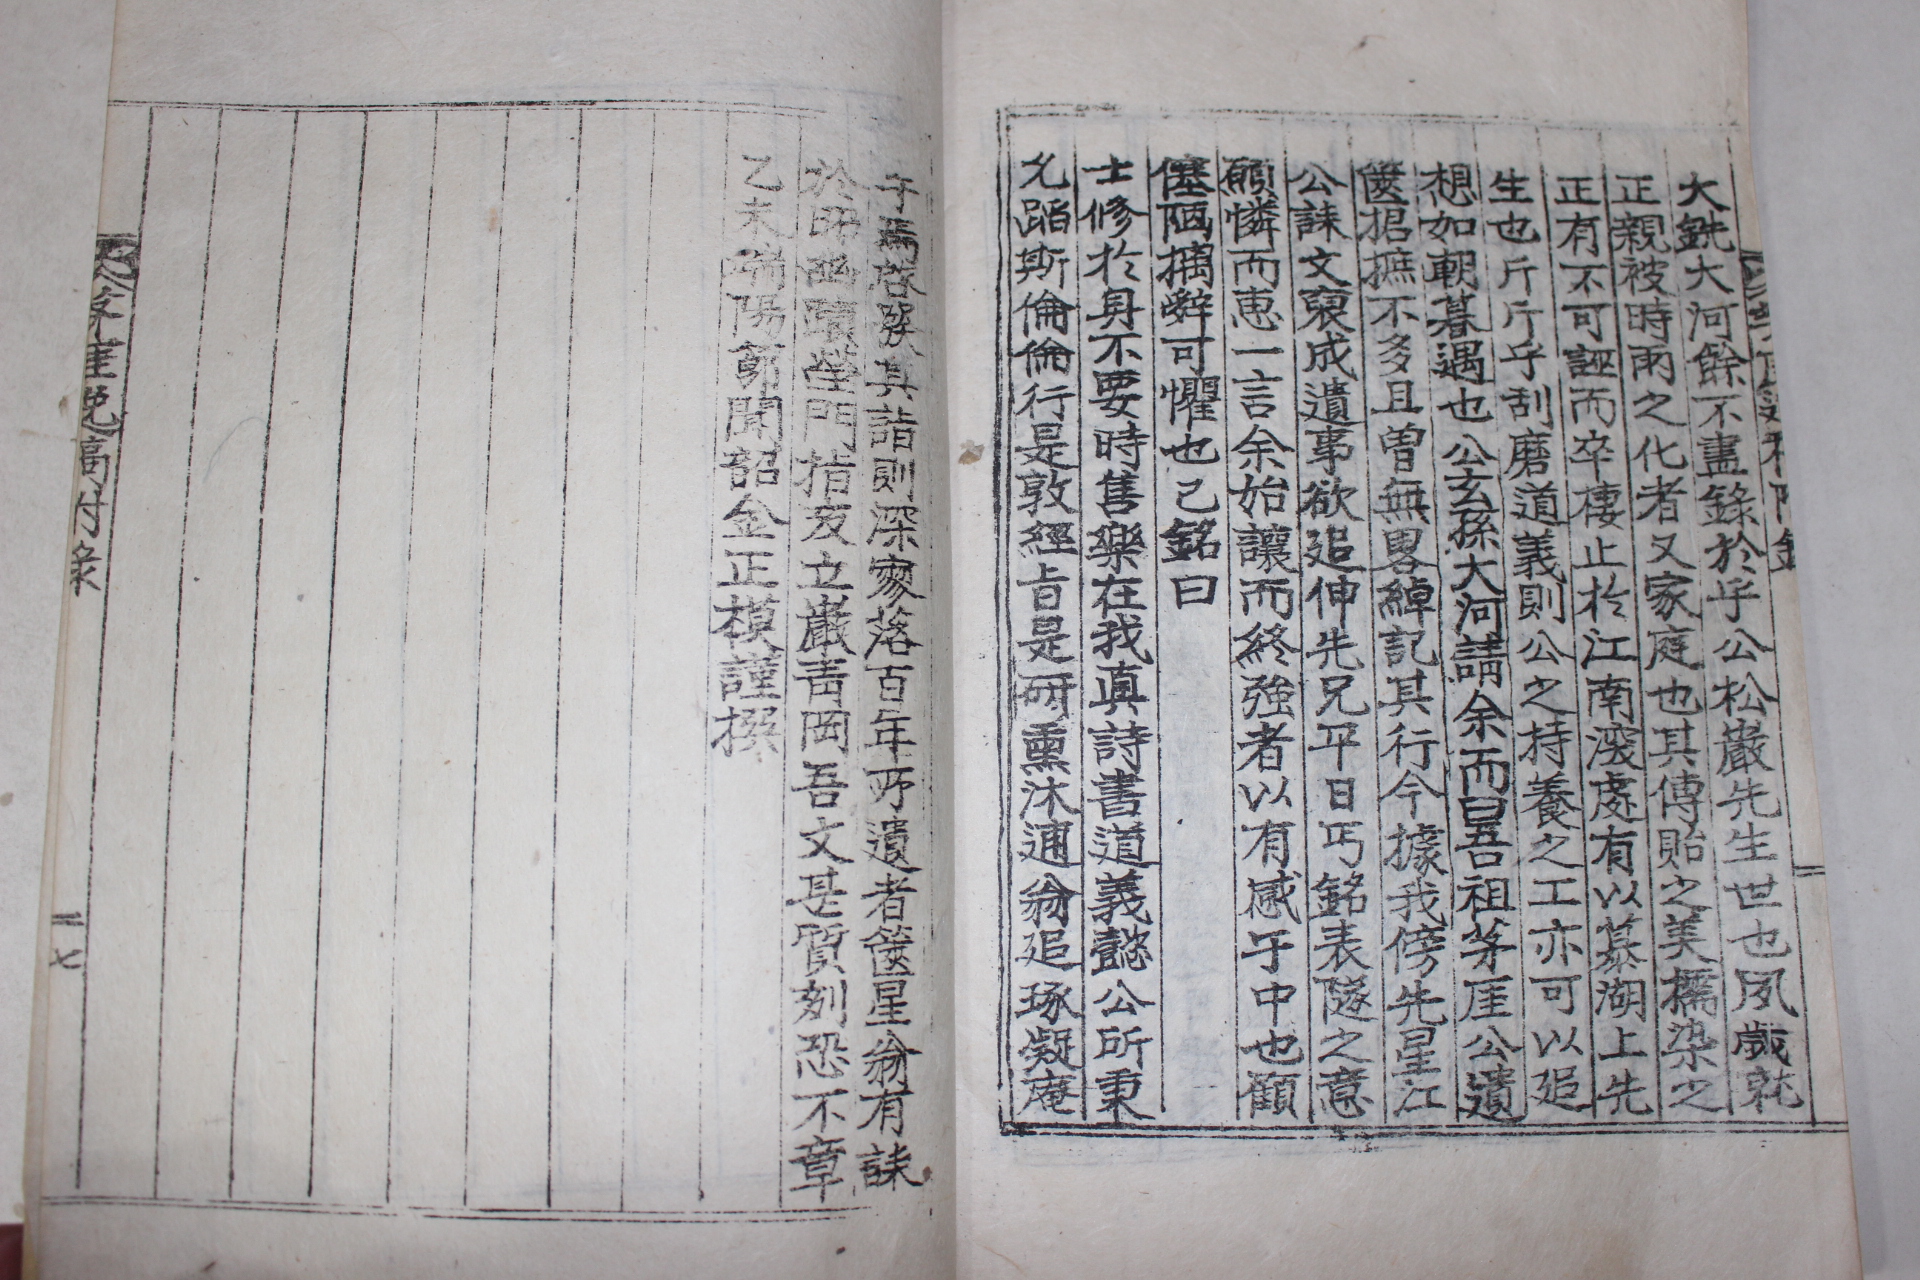 大銑大河餘不盡錄於乎公松巖先生世也夙歲就
正親被時雨之化者又家庭也其傳貽之美擩染之
正有不可誣而卒棲止於江南深處有以慕湖上先
生也斤斤乎刮磨道義則公之持養之工亦可以追
想如朝暮遇也公玄孫大河請余而曰吾祖芧厓公遺
篋捃摭不多且曾無畧綽記其行今據我傍先星江
公誄文裒成遺事欲追伸先兄平日丐銘表隧之意
願憐而惠一言余始讓而終强者以有感于中也顧
僿陋摛辭可懼也已銘曰
士修於身不要時售樂在我眞詩書道義懿公所秉
允蹈斯倫倫行是敦經旨是研熏沐逋翁追琢凝庵
于焉啓發其詣則深寥落百年所遺者篋星翁有誄
於昭幽隧塋門指友立巖靑岡吾文甚質刻恐不章
乙未端陽節聞韶金正模謹撰
芧厓逸稿付彔
十七